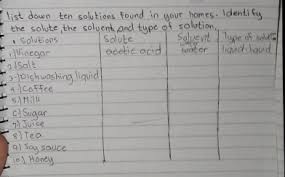 list down ten solutions found in your homes. Identify
the solute, the solvent, and type of solution.
Solutions Solute Solvent Type of
1) Vinegar acetic acid water liquid-liquid
2) Salt
3) Dishwashing liquid
4) Coffee
5) Milk
6) Sugar
7) Juice
8) Tea
9) Soy sauce
10) Honey